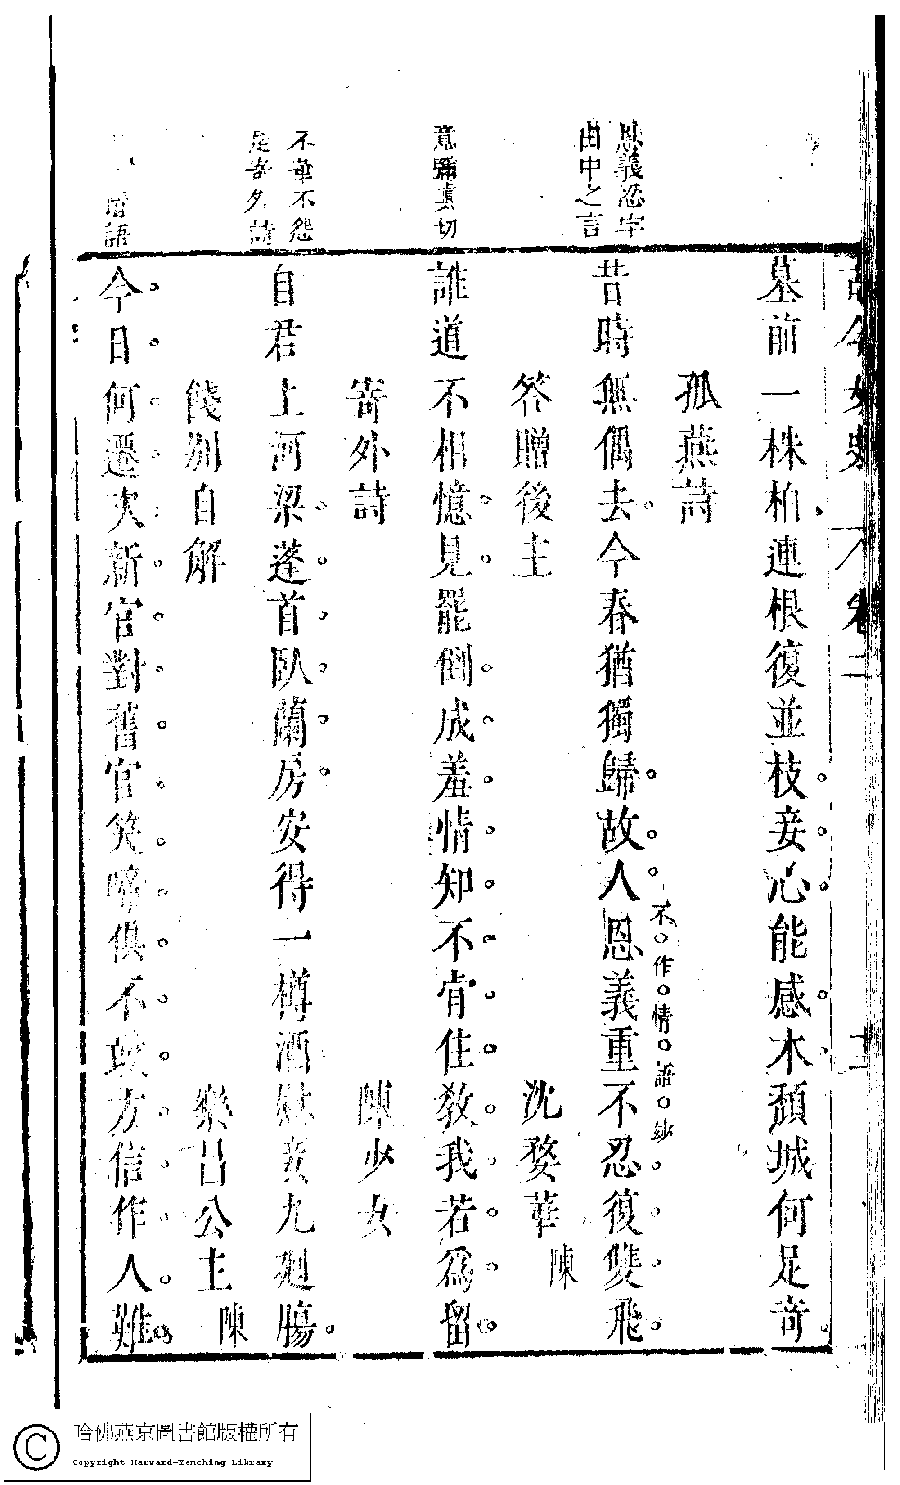 墓前一株柏連根復並枝妾心能感木頹城何足奇
孤燕詩
恩義忍字
由中之言
昔時無偶去今春猶獨歸故人恩義重不忍復雙飛
不作情語妙
答贈後主 沈婺華 陳
意彌真切
誰道不相憶見罷倒成羞情知不肯住教我若爲留
寄外詩 陳少女
不華不怨
是寄夕詩
自君上河梁蓬首臥蘭房安得一樽酒慰妾九廻腸
餞別自解 樂昌公主 陳
語
今日何遷次新官對舊官笑啼俱不敢方信作人難
哈佛燕京圖書館版權所有
Copyright Harvard-Yenching Library